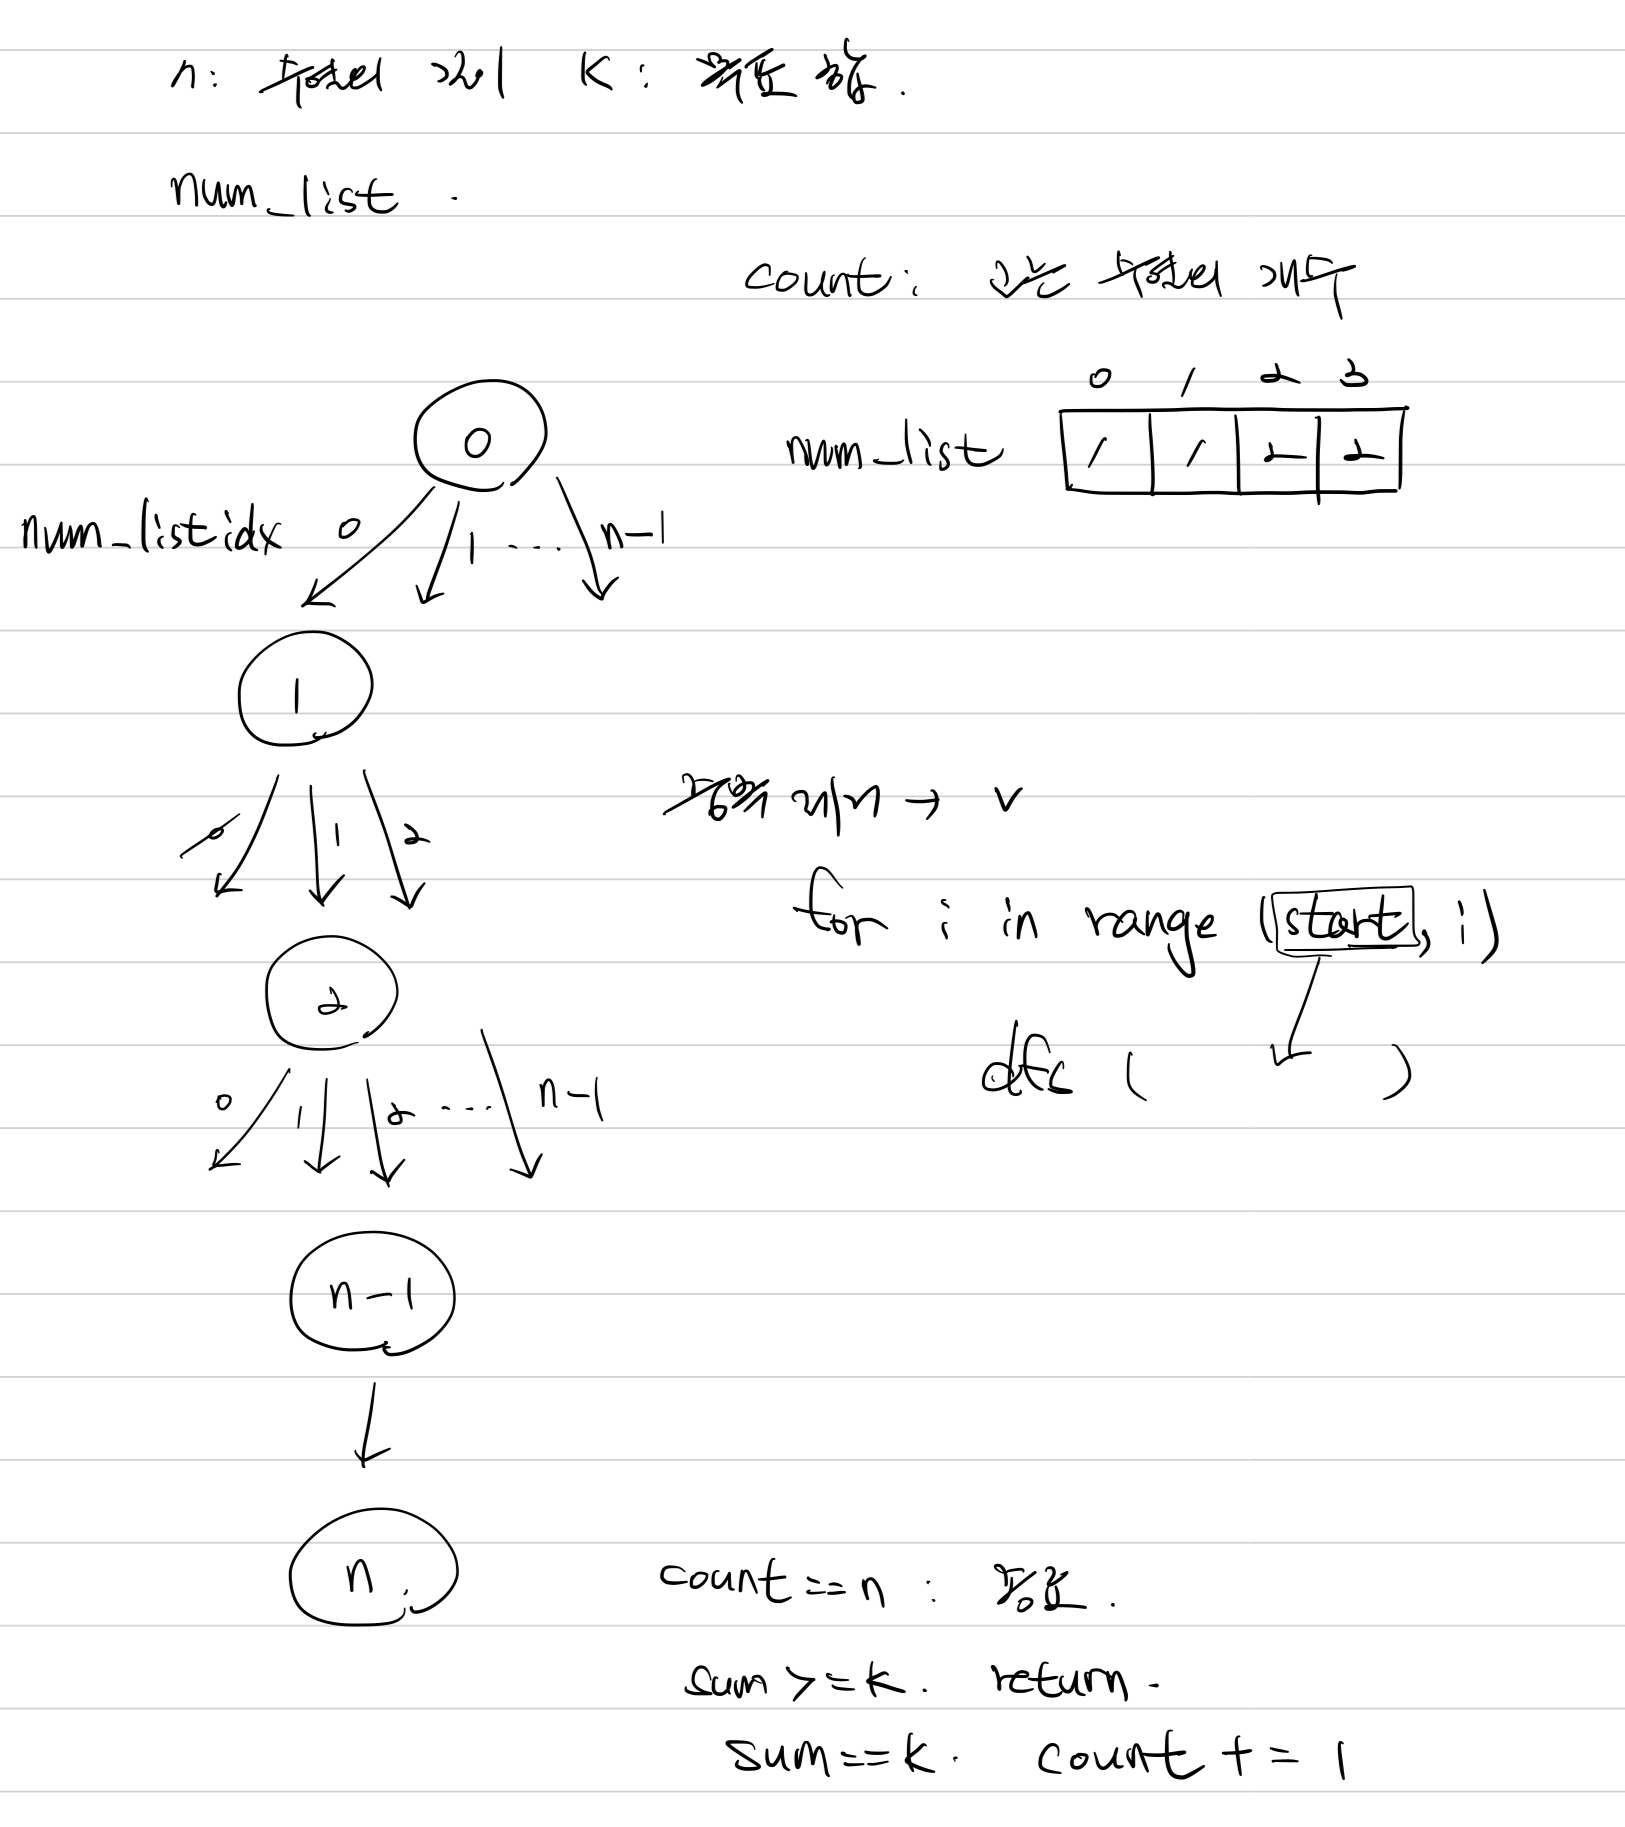 n: 부분수열 길이 K: 목표 합.
num_list .
count: 고른 부분수열 개수
0 1 2 3
0
num_list 1 1 2 2
num_list idx 0 1 .... n-1
1
0 1 2
중복 제거 → v
for i in range (start, i)
2
dfs ( )
0 1 2 .... n-1
n-1
n
count == n : 종료.
sum >= k. return.
sum == k. count += 1